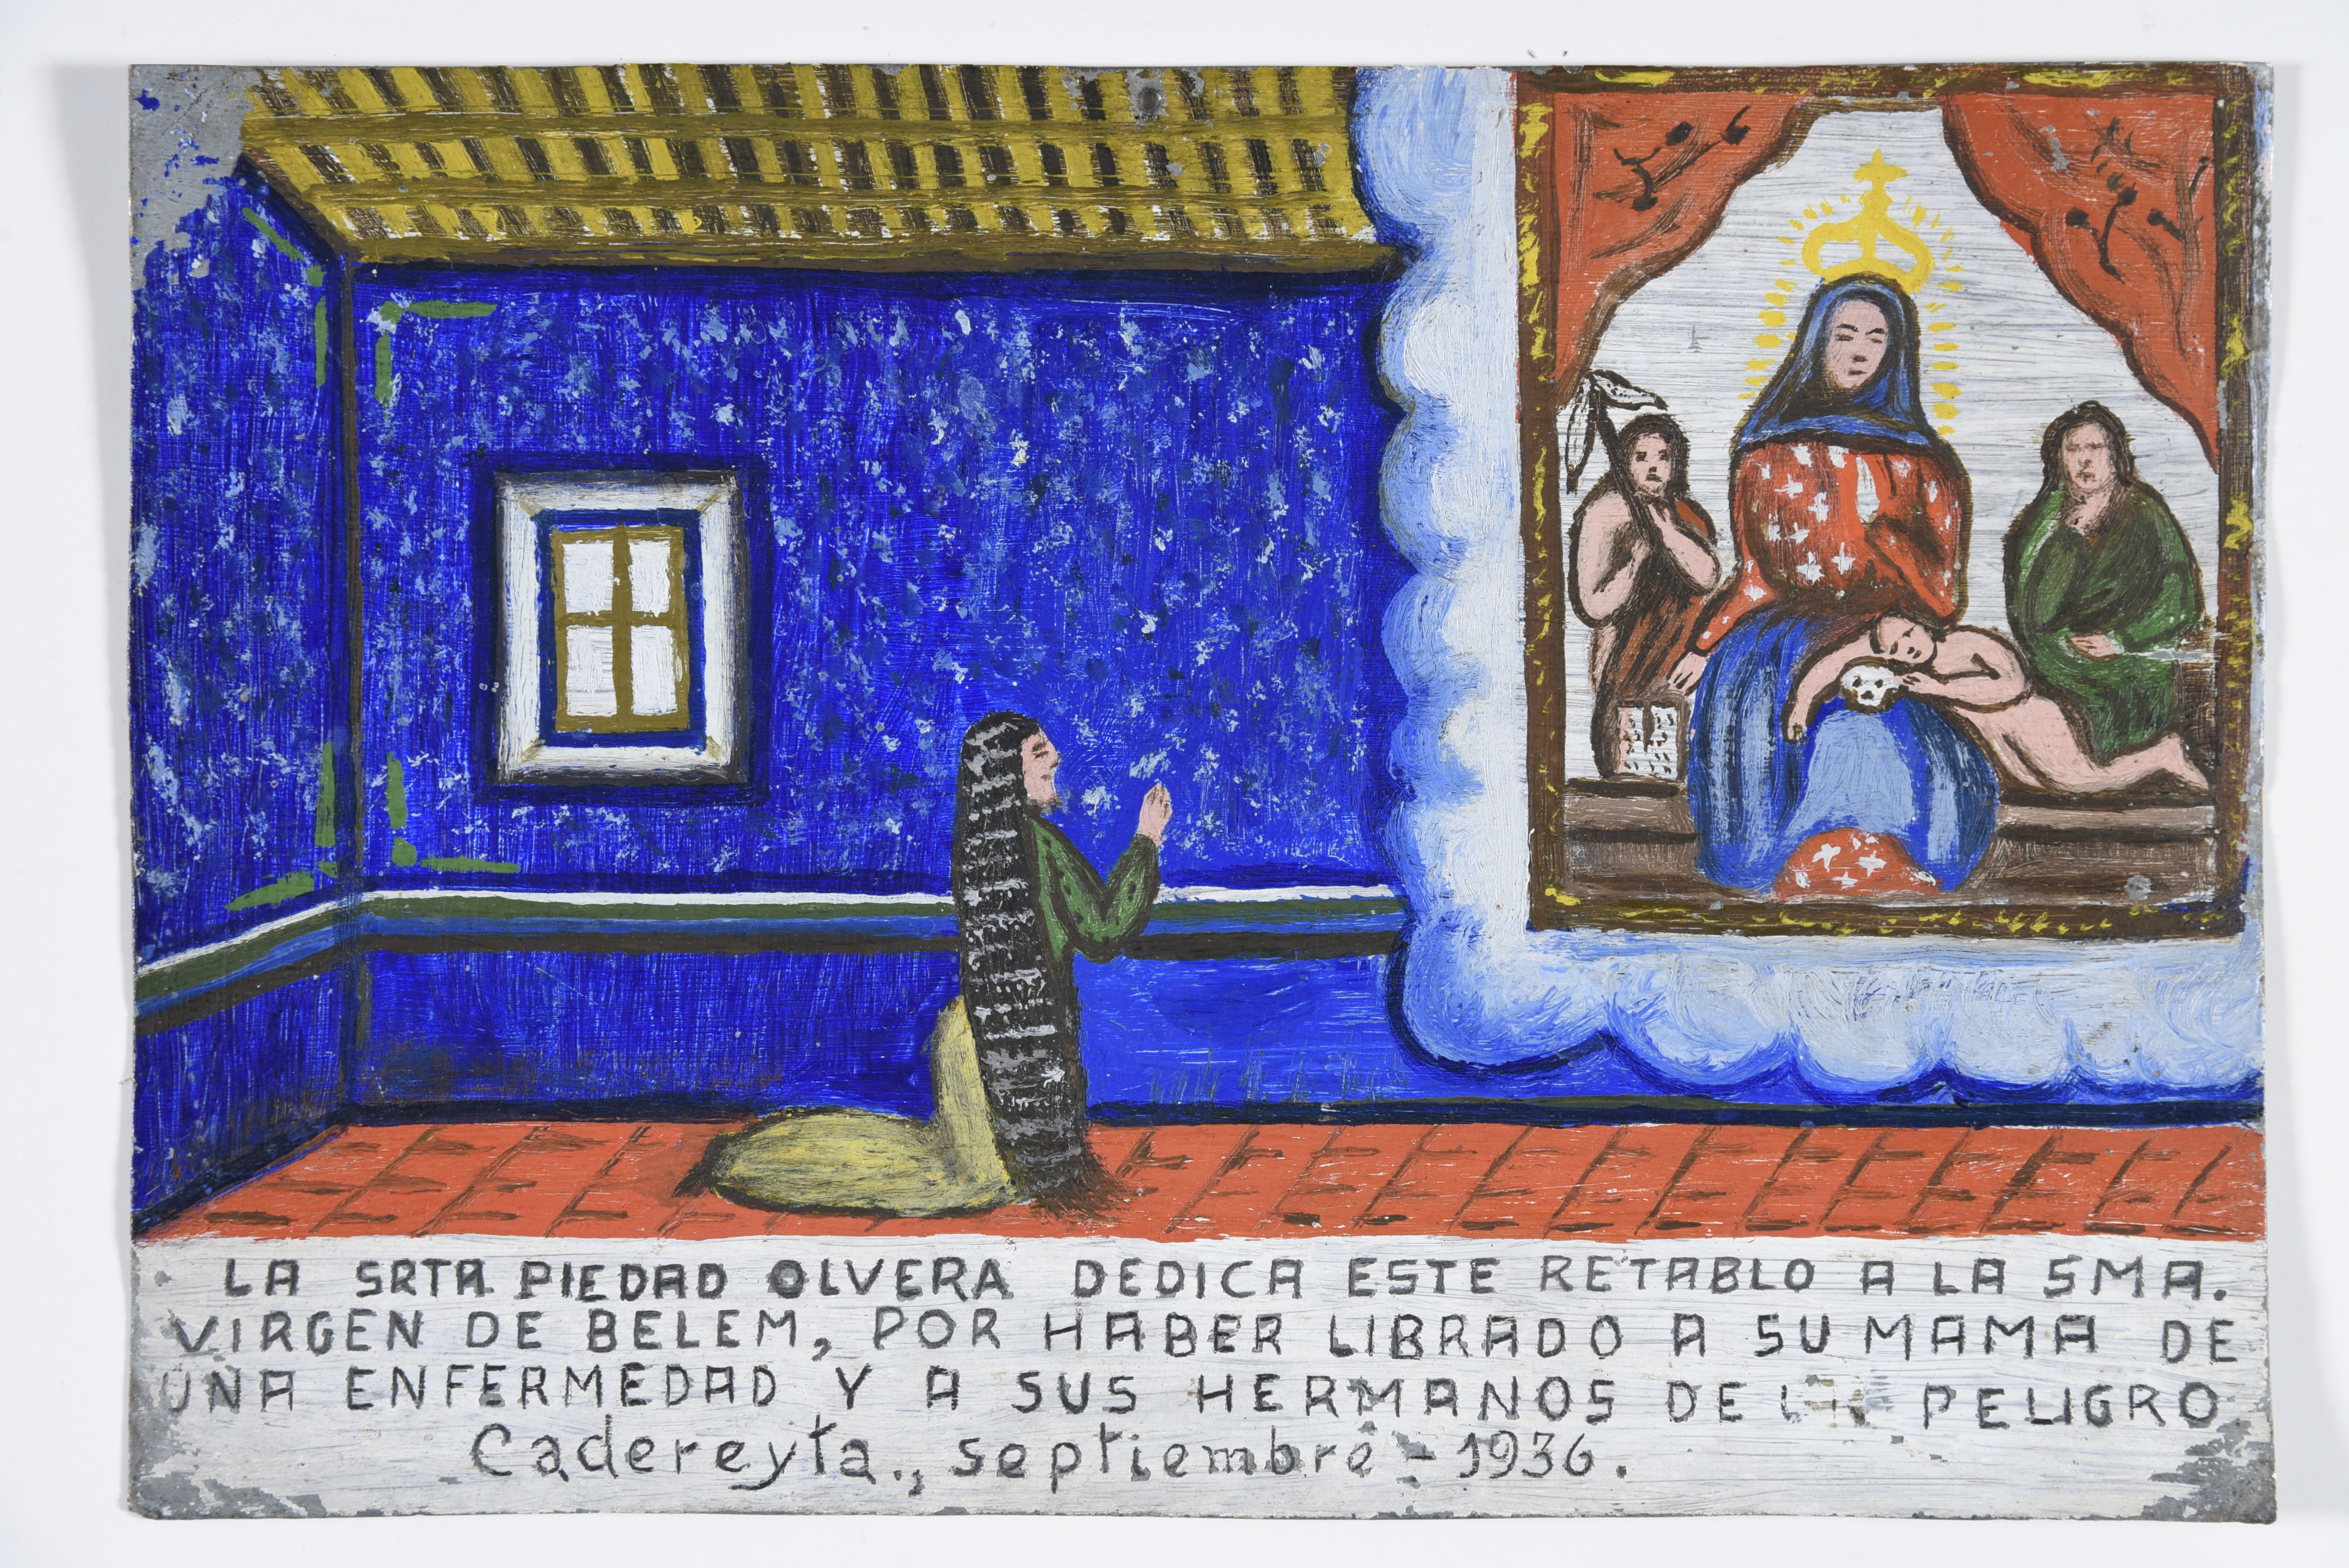 LA SRTA PIEDAD OLVERA DEDICA ESTE RETABLO A LA SMA.
VIRGEN DE BELEM, POR HABER LIBRADO A SU MAMA DE
UNA ENFERMEDAD Y A SUS HERMANOS DE PELIGRO
Cadereyta., septiembre - 1936.